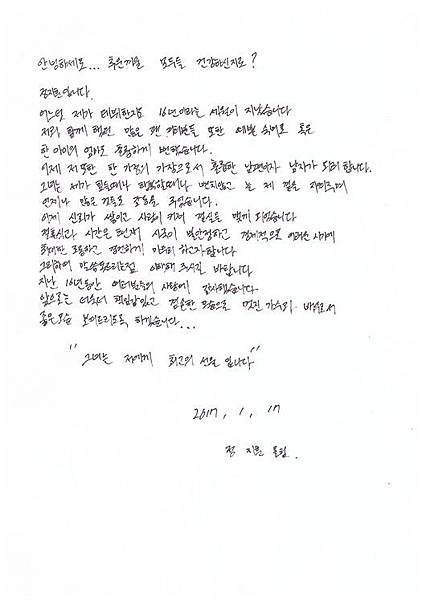 안녕하세요... 추운겨울 모두들 건강하신지요?
정지훈입니다.
어느덧 제가 데뷔한지도 16년이라는 세월이 지났습니다
저와 함께 했던 많은 팬 여러분들 또한 예쁜 숙녀로 혹은
한 아이의 엄마로 훌륭하게 변하였습니다.
이제 저 또한 한 가정의 가장으로서 훌륭한 남편이자 남자가 되려 합니다.
그녀는 제가 힘들때나 행복할때나 변치않고 늘 제 곁을 지켜주며
언제나 많은 것들로 감동을 주었습니다.
이제 신뢰가 쌓이고 사랑이 커져 결실을 맺게 되었습니다
결혼식과 시간은 현재 시국이 불안정하고 경제적으로 어려운 시기에
최대한 조용하고 경건하게 마무리 하고자합니다
그리하여 말씀못드리는점 이해해 주시길 바랍니다.
지난 16년동안 여러분들의 사랑에 감사했습니다.
앞으로는 더욱더 책임감있고 겸손한 모습으로 멋진 가수와 배우로서
좋은모습 보여드리도록 하겠습니다...
"그녀는 저에게 최고의 선물 입니다"
2017, 1, 17
정 지훈 올림.